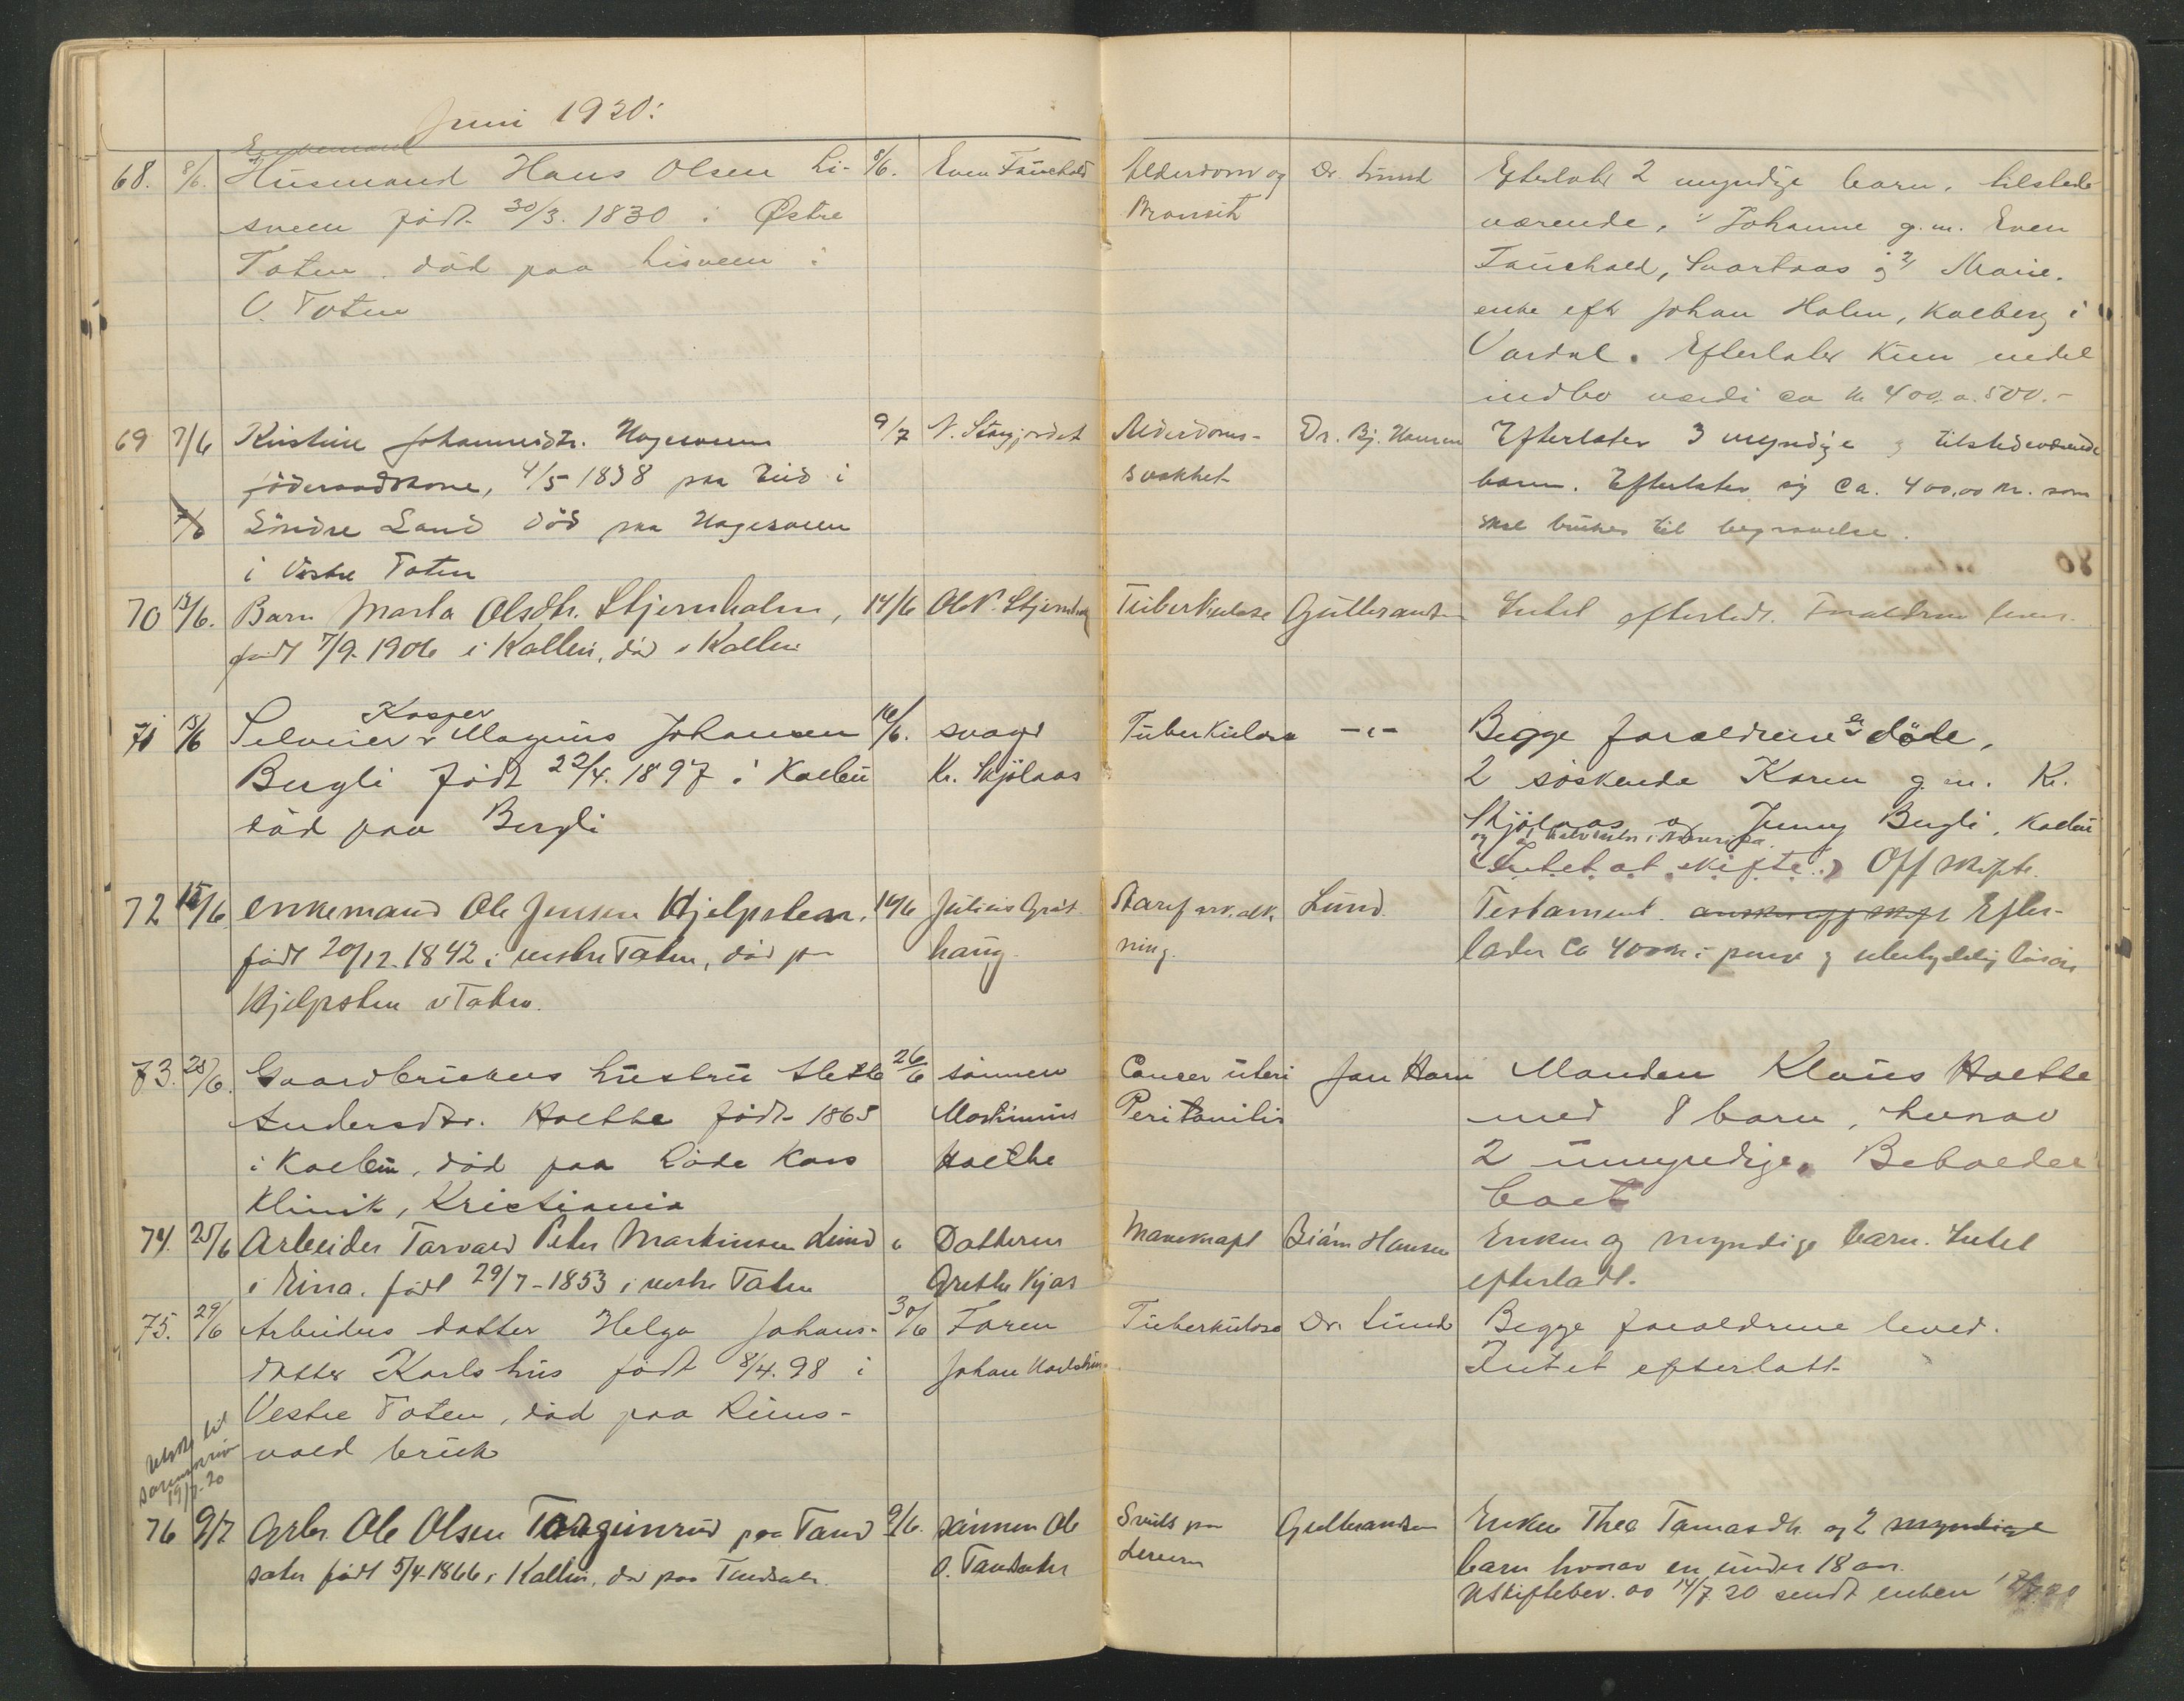 Juni 1920:
Enkemand
68. 8/6. Husmand Hans Olsen Li- 8/6. Even Fauchald Alderdom og Dr. Lund Efterlater 2 myndige barn, tilstede
sveen født 30/3. 1830 i Østre Bronsit værende, 1/ Johanne g.m. Even
Toten. død paa Lisveen i Fauchald, Svartaas og 2/ Marie.
V. Toten enke eft Johan Holm, Kolberg i
Vardal. Efterlater kun endel
indbo værdi ca kr 400 a 500.-
69 7/6 Kristine Johannesdtr. Hagesveen 9/7 N. Stangjordet Alderdoms- Dr. Bj. Hansen Efterlater 3 myndige og tilstedeværende
föderaadskone, 4/5 1838 paa Eid i svakhet barn. Efterlater sig Ca. 400,00 kr. som
7/6 Söndre Land Död paa Hagesveen skal brukes til begravelse.
i Vestre Toten
70 13/6. Barn Marta Olsdtr. Stjernholm, 14/6 Ole N. Tuberkulose Gulbrandsen Intet efterladt. Forældrene lever.
født 7/9. 1906 i Kolbu, død i Kolbu
Kasper
71 15/6 Magnus Johansen 16/6. svoger Tuberkulose -"- Begge forældrene er døde,
Bergli født 22/4. 1897 i Kolbu Kr. Skjölaas 2 söskende Karen g.m. Kr.
död paa Bergli Skjölaas og Jenny Bergli, Kolbu
og 1 halvsöster i Amerika.
(Intet at skifte.) Off skifte.
72 15/6 Enkemand Ole Jensen Hjelpsten, 19/6 Julius Lund. Testament. Efter-
født 20/12-1842 i vestre Toten, død paa haug. ning. later ca 400 kr i penge og ubetydelig løsøre
Hjelpsten v Toten.
73. 25/6. Gaardbrukers hustru 26/6 sönnen Cancer uteri Jan Horn Manden Klaus Hoelke
Andersdtr. født 1865 Martinius Peritonitis med 8 barn, hvorav
i Kolbu, død paa Röde Kors 2 umyndige. Beholder
Klinik, Kristiania boet
74. 25/6 Arbeider Torvald Peter Martinsen Lund " Datteren Bjørn Hansen Enken og myndige barn. Intet
i Eina. født 29/7-1853 i vestre Toten Grethe efterladt.
75. 29/6 Arbeiders datter Helga Johans- 30/6 Faren Tuberkulose Dr. Lund Begge forældrene lever.
datter Karlshus født 8/4. 98 i Johan Karlshus Intet efterlatt
Vestre Toten, död paa
vold bruk
til
sorenskriver
19/7-20
76 9/7 Gbr. Ole Olsen Torgunrud paa Tand 9/6. sønnen Ole Svulst paa Gulbrandsen Enken Thea Tomasdtr. og 2 myndige
sæter født 5/4-1866 i Kolbu, død paa Tandsæter. O. Tandsæter leveren barn hvorav en under 18 aar.
Uskiftebev. av 14/7 20 sendt enken